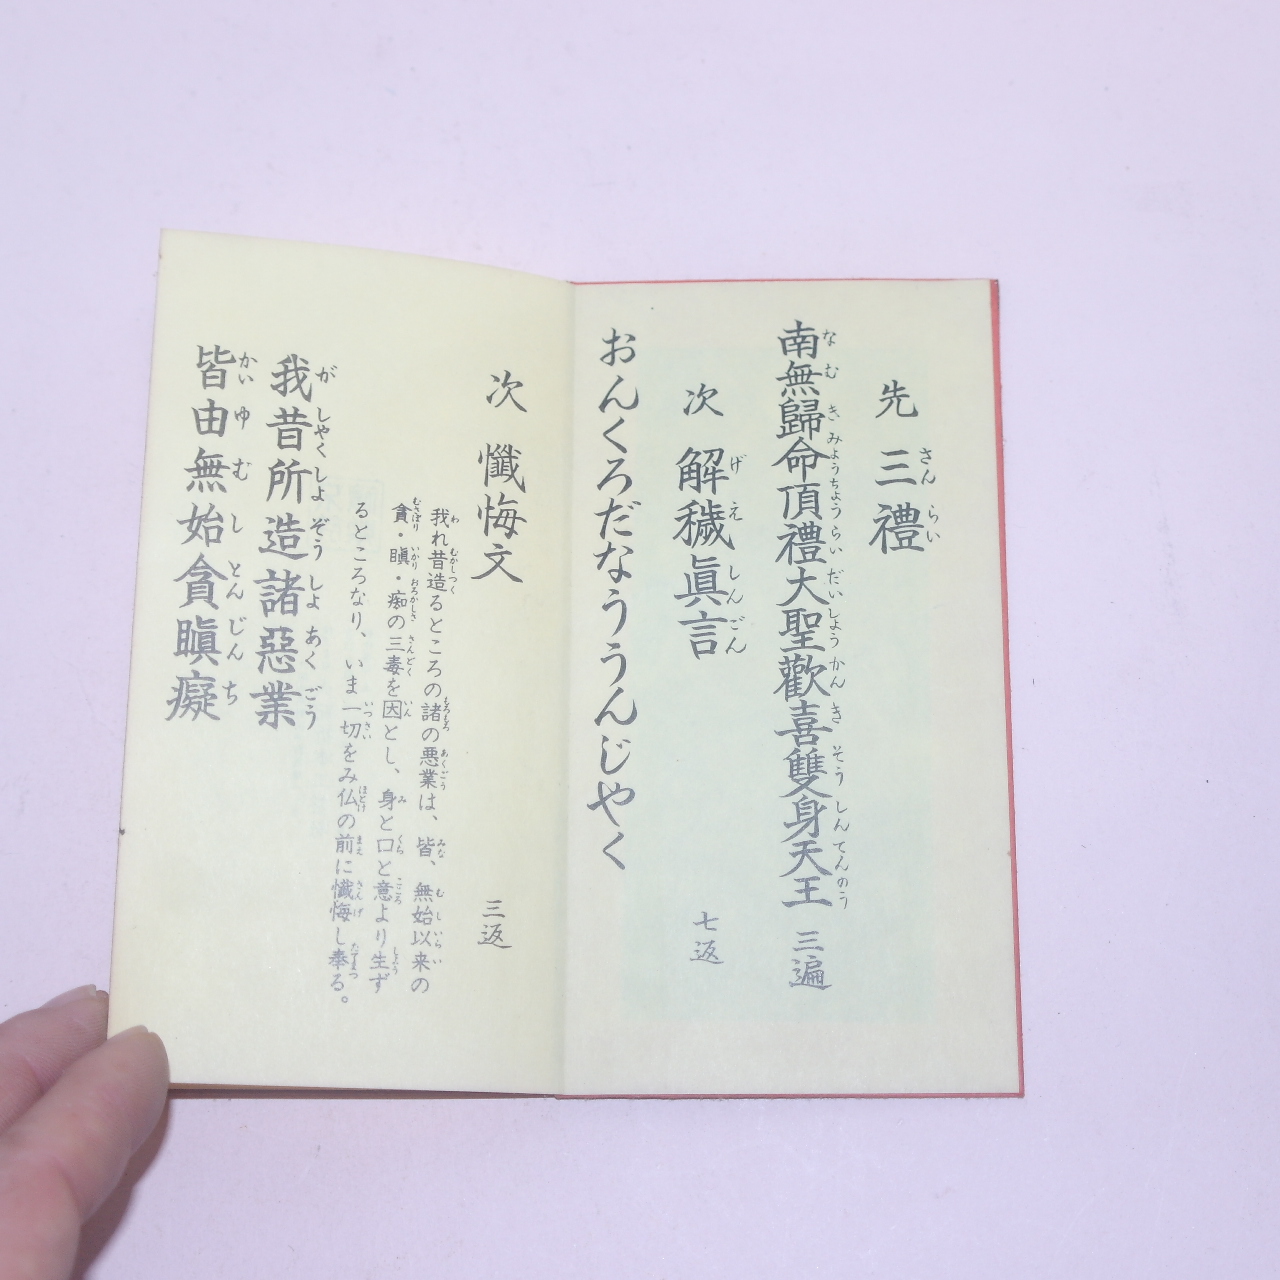 先 三禮
南無歸命頂禮大聖歡喜雙身天王 三遍
次 解穢眞言 七返
おんくろだなううんじやく
次 懺悔文 三返
我れ昔造るところの諸の悪業は、皆、無始以来の
貪・瞋・痴の三毒を因とし、身と口と意より生ず
るところなり、いま一切をみ仏の前に懺悔し奉る。
我昔所造諸惡業
皆由無始貪瞋癡